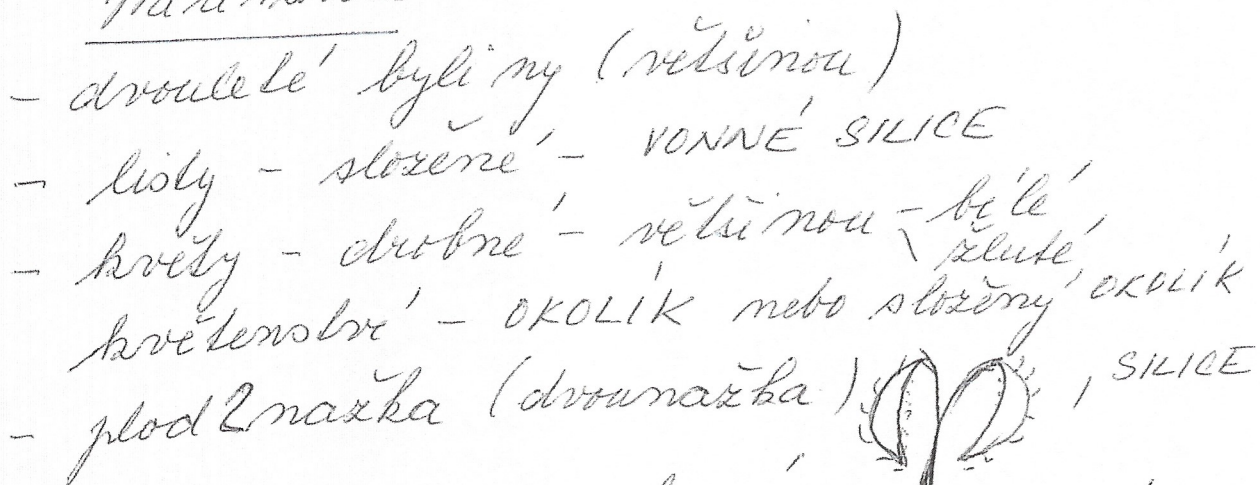 - dvouleté byliny (většinou)
- listy - složené - VONNÉ SILICE
- květy - drobné - většinou - bílé
\ žluté
květenství - OKOLÍK nebo složený OKOLÍK
- plod 2nažka (dvounažka) , SILICE